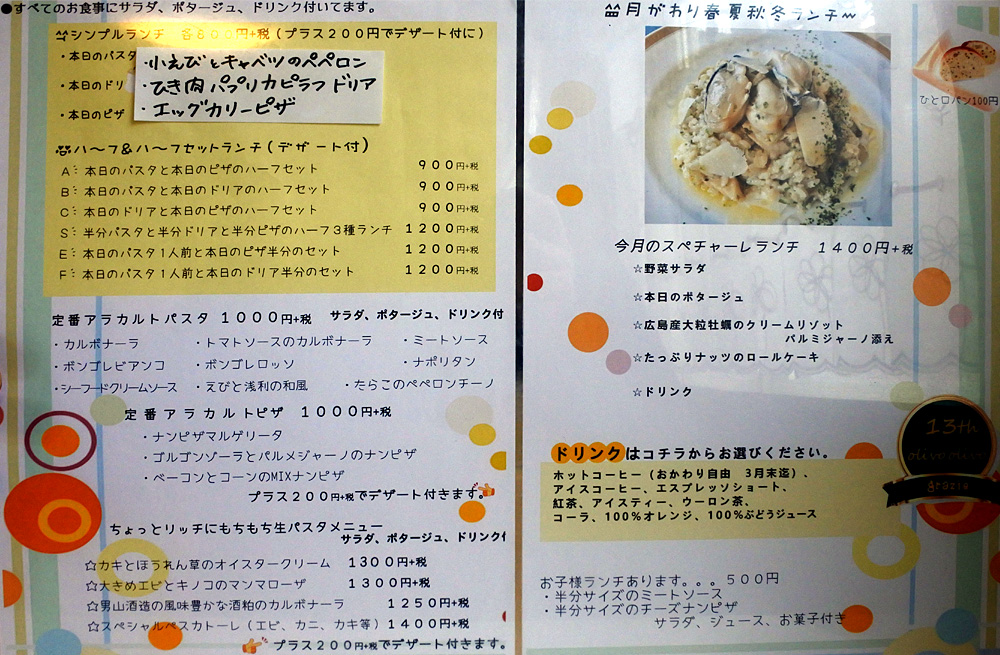 ●すべてのお食事にサラダ、ポタージュ、ドリンク付いてます。
シンプルランチ 各800円+税(プラス200円でデザート付に)
・本日のパスタ
・小えびとキャベツのペペロン
・本日のドリ
・ひき肉パプリカピラフドリア
・本日のピザ
・エッグカリーピザ
ハ〜フ&ハ〜フセットランチ(デザート付)
A:本日のパスタと本日のピザのハーフセット 900円+税
B:本日のパスタと本日のドリアのハーフセット 900円+税
C:本日のドリアと本日のピザのハーフセット 900円+税
S:半分パスタと半分ドリアと半分ピザのハーフ3種ランチ 1200円+税
E:本日のパスタ1人前と本日のピザ半分のセット 1200円+税
F:本日のパスタ1人前と本日のドリア半分のセット 1200円+税
定番アラカルトパスタ 1000円+税 サラダ、ポタージュ、ドリンク付
・カルボナーラ ・トマトソースのカルボナーラ ・ミートソース
・ボンゴレビアンコ ・ボンゴレロッソ ・ナポリタン
・シーフードクリームソース ・えびと浅利の和風 ・たらこのペペロンチーノ
定番アラカルトピザ 1000円+税
・ナンピザマルゲリータ
・ゴルゴンゾーラとパルメジャーノのナンピザ
・ベーコンとコーンのMIXナンピザ
プラス200円+税でデザート付きます。
ちょっとリッチにもちもち生パスタメニュー
サラダ、ポタージュ、ドリンク付
☆カキとほうれん草のオイスタークリーム 1300円+税
☆大きめエビとキノコのマンマローザ 1300円+税
☆男山酒造の風味豊かな酒粕のカルボナーラ 1250円+税
☆スペシャルペスカトーレ(エビ、カニ、カキ等) 1400円+税
プラス200円+税でデザート付きます。
月がわり春夏秋冬ランチ〜
ひと口パン100円
今月のスペチャーレランチ 1400円+税
☆野菜サラダ
☆本日のポタージュ
☆広島産大粒牡蠣のクリームリゾット
パルミジャーノ添え
☆たっぷりナッツのロールケーキ
☆ドリンク
13th
olivo mini
grazie
ドリンクはコチラからお選びください。
ホットコーヒー(おかわり自由 3月末迄)、
アイスコーヒー、エスプレッソショート、
紅茶、アイスティー、ウーロン茶、
コーラ、100%オレンジ、100%ぶどうジュース
お子様ランチあります。。。500円
・半分サイズのミートソース
・半分サイズのチーズナンピザ
サラダ、ジュース、お菓子付き